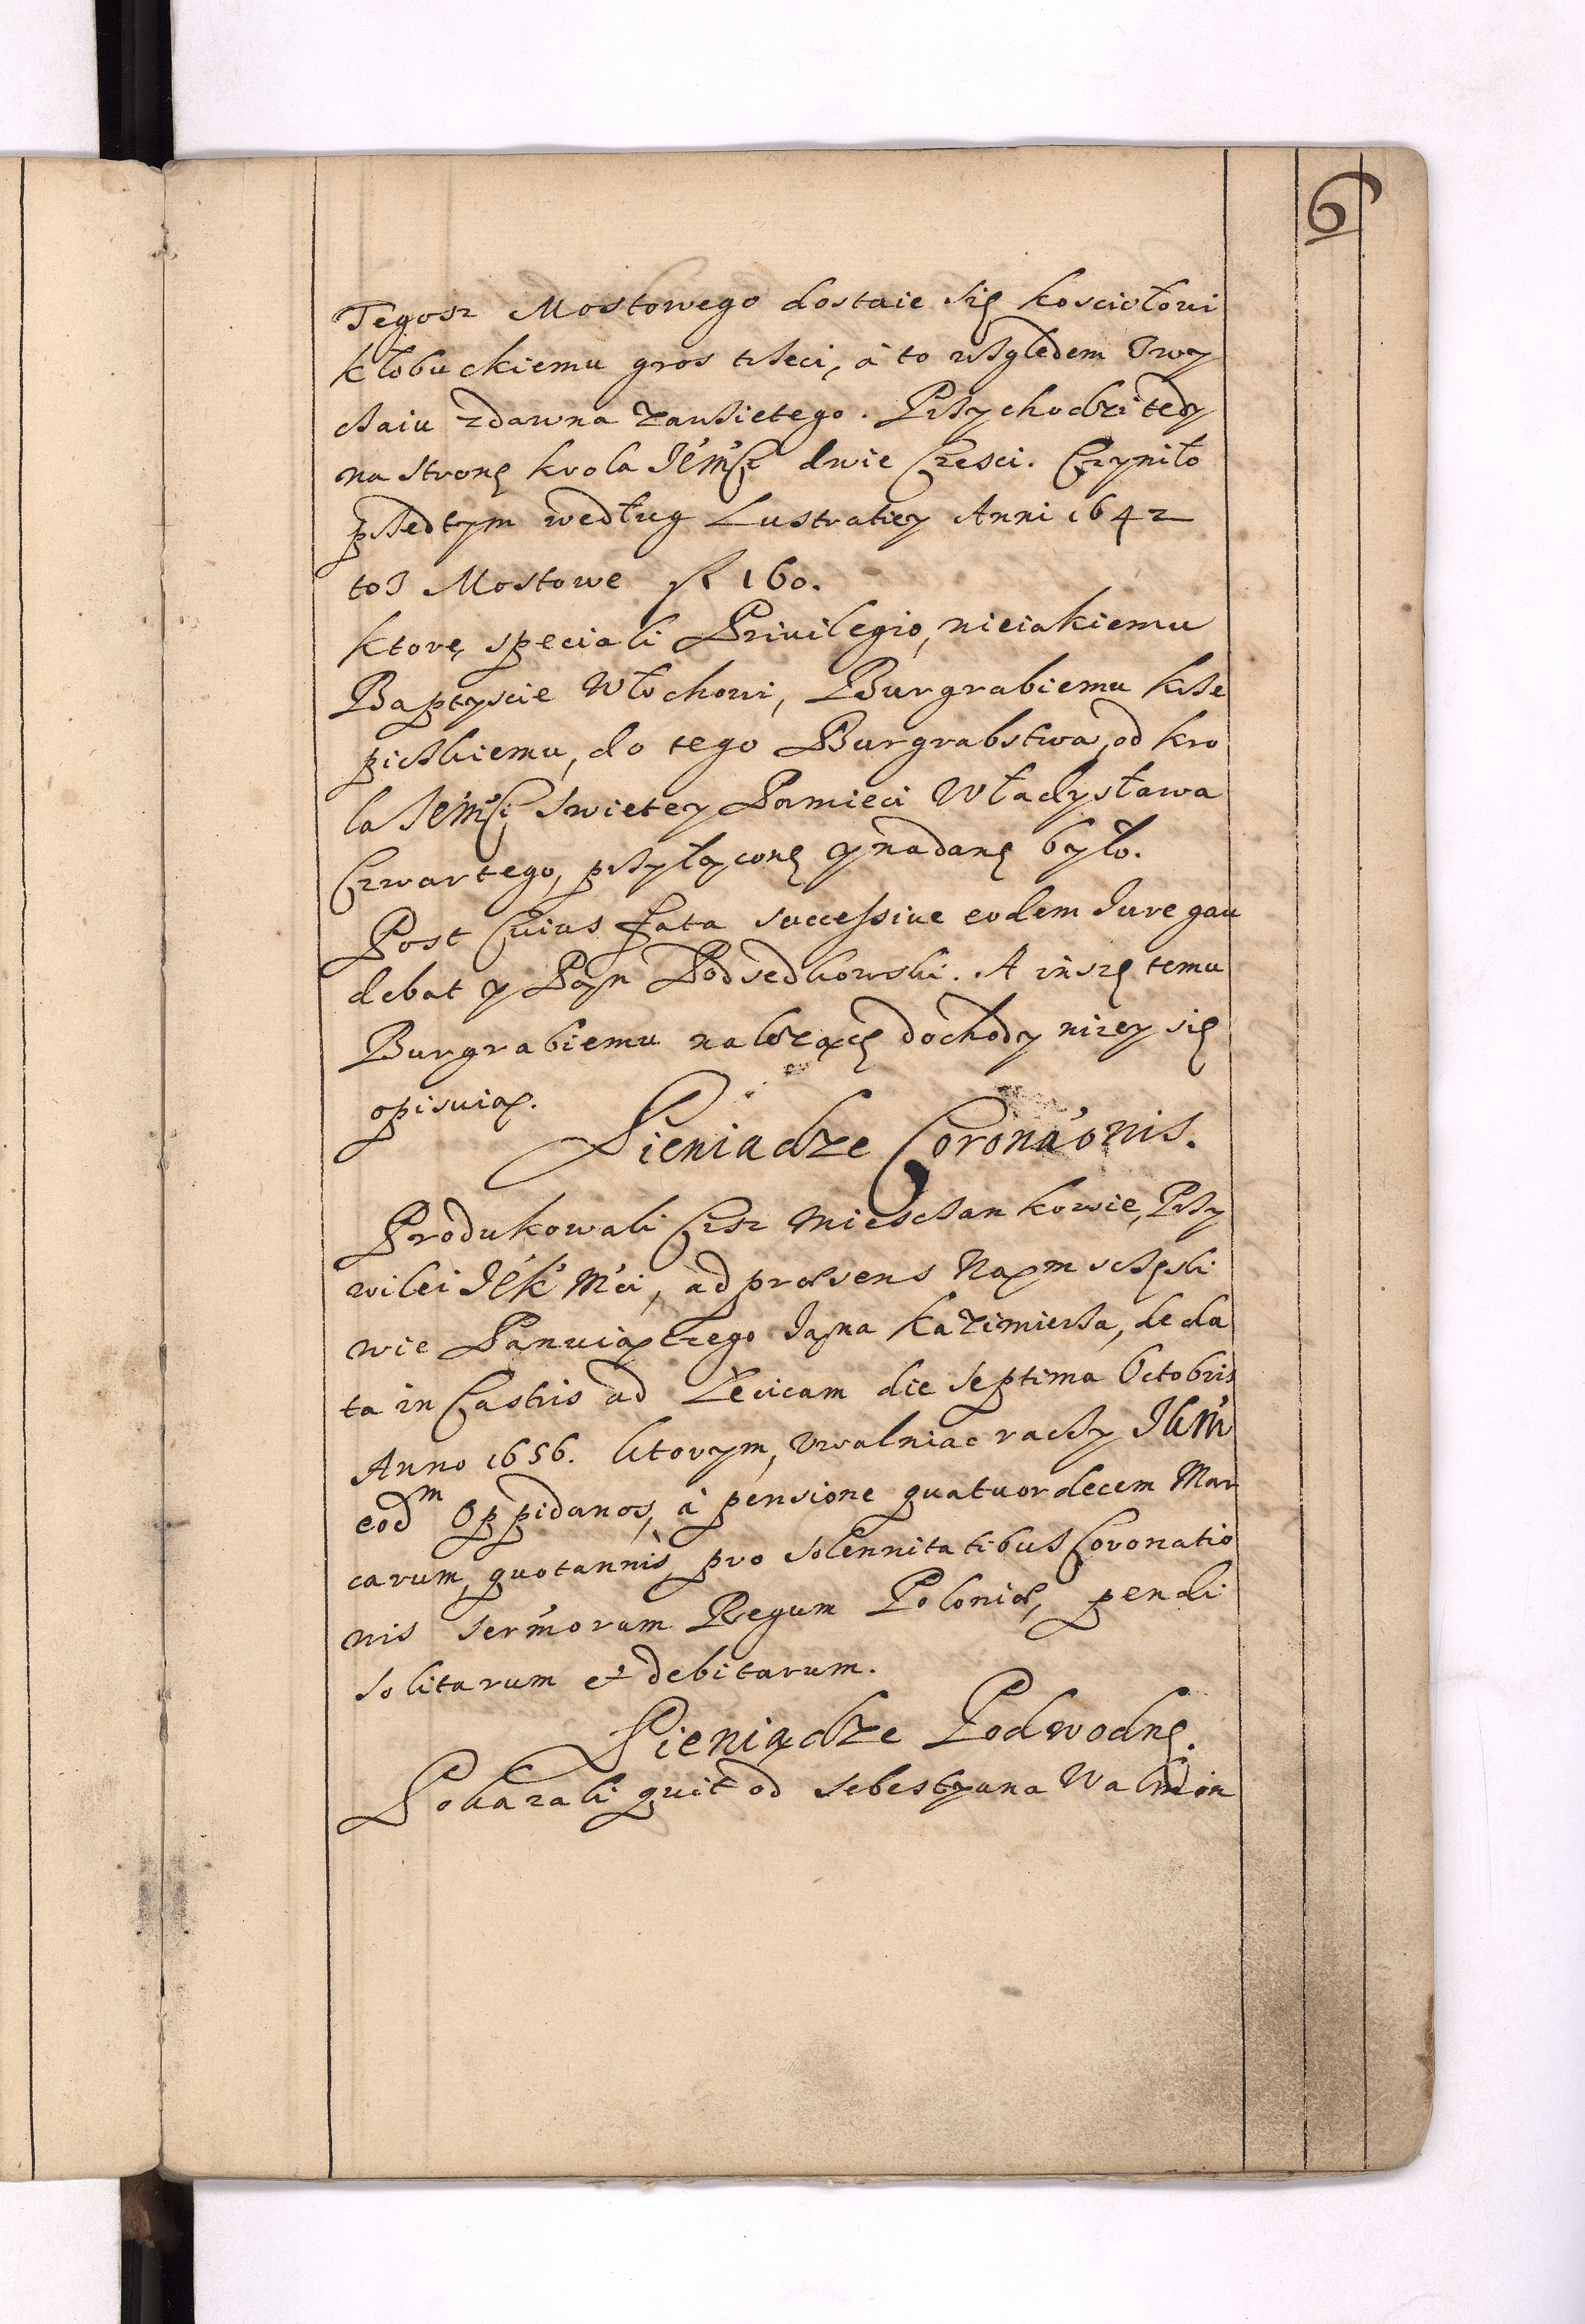 6
Tegosz Mostowego dostaie się kosciołowi
kłobuckiemu gros trzeci, à to względem Zwy
czaiu zdawna zawzietego. Przychodzi tedy
na stronę krola JeMści dwie Części. Czyniło
przedtym według Lustratiey Anni 1642
toż Mostowe fl 160.
ktorę speciali Privilegio, nieiakiemu
Baptyscie Włochowi, Burgrabiemu krze
pickiemu, do tego Burgrabstwa, od kro
la JeMści Swietey Pamieci Władysława
Czwartego, przyłączonę y nadanę było.
Post Cuius fata successiue eodem Iure gau
debat y Pan Podsedkowski. A inszę temu
Burgrabiemu należącę dochody nizey się
opisuią.
Pieniadze Coronáonis.
Produkowali Cisz Mieszczankowie, Przy
wilei JeK Mci, ad præsens Nam szczęsli
wie Panuiącego Jana Kazimierza, de da
ta in Castris ad Lecicam die Septima Octobris
Anno 1656. ktorym, vwalniac raczy JKM
eodm Oppidanos, à pensione quatuordecem Mar
carum, quotannis, pro Solennitatibus Coronatio
nis Sermorum Regum Poloniæ, pendi
solitarum et debitarum.
Pieniądze Podwodnę.
Pokazali quit od Sebestyana